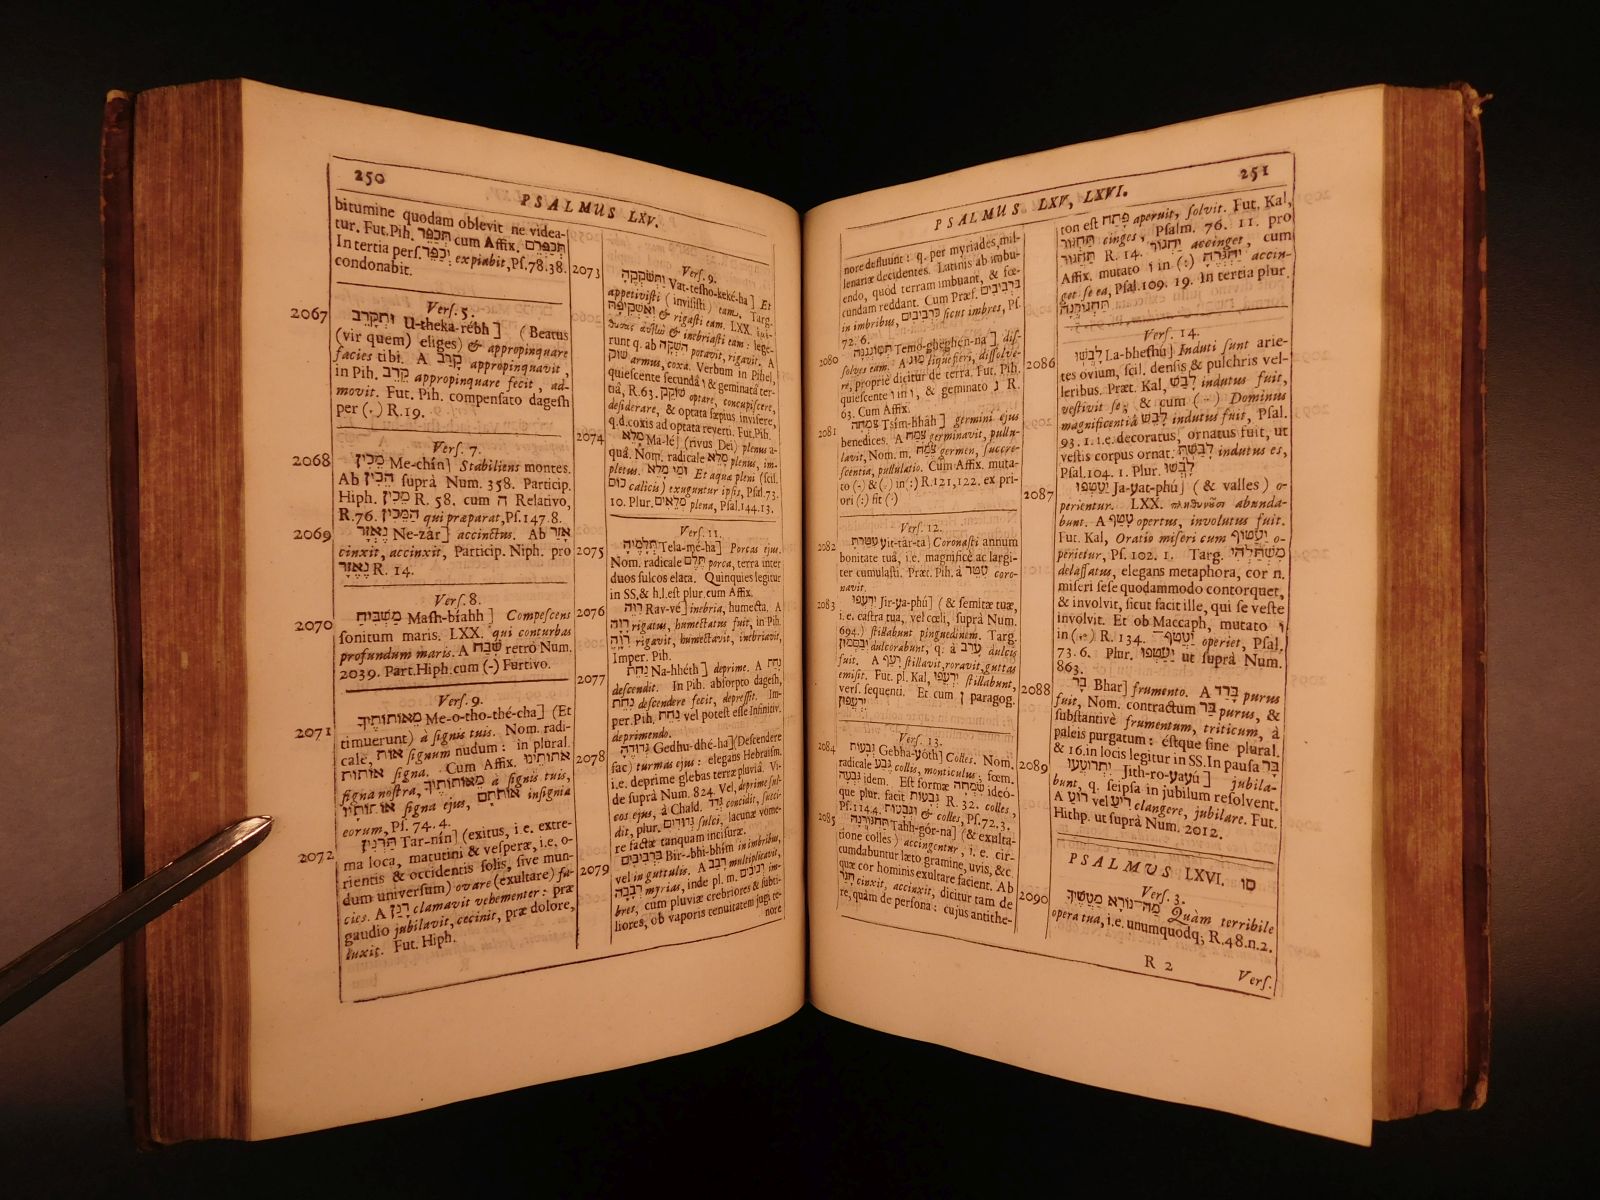 250
PSALMUS LXV.
bitumine quodam oblevit ne videa-
tur. Fut. Pih. תְּכַפֵּר cum Affix. תְּכַפְּרֵם
In tertia perſ. יְכַפֵּר expiabit, Pſ. 78. 38.
condonabit.
Verſ. 5.
2067 וּתְקָרֵב U-theka-rébh ] (Beatus
(vir quem) eliges) & appropinquare
facies tibi. A קָרַב appropinquavit,
in Pih. קֵרַב appropinquare fecit, ad-
movit. Fut. Pih. compenſato dageſh
per (..) R. 19.
Verſ. 7.
2068 מֵכִין Me-chín ] Stabiliens montes.
Ab הֵכִין ſuprà Num. 358. Particip.
Hiph. מֵכִין R. 58. cum ה Relativo,
R. 76. הַמֵּכִין qui præparat, Pſ. 147. 8.
2069 נֶאְזָר Ne-zár ] accinctus. Ab אָזַר
cinxit, accinxit, Particip. Niph. pro
נֶאֱזָר R. 14.
Verſ. 8.
2070 מַשְׁבִּיחַ Maſh-bíahh ] Compeſcens
ſonitum maris. LXX. qui conturbas
profundum maris. A שָׁבַח retrò Num.
2039. Part. Hiph. cum (-) Furtivo.
Verſ. 9.
2071 מֵאוֹתוֹתֶיךָ Me-o-tho-thé-cha ] (Et
timuerunt) à ſignis tuis. Nom. radi-
cale, אוֹת ſignum nudum: in plural.
אוֹתוֹת ſigna. Cum Affix. אוֹתוֹתֵינוּ
ſigna noſtra, מֵאוֹתוֹתֶיךָ à ſignis tuis,
אוֹתוֹתָיו ſigna ejus, אוֹתֹתָם inſignia
eorum, Pſ. 74. 4.
2072 תַּרְנִין Tar-nín ] (exitus, i.e. extre-
ma loca, matutini & veſperæ, i.e. o-
rientis & occidentis ſolis, ſive mun-
dum univerſum) ovare (exultare) fa-
cies. A רָנַן clamavit vehementer: præ
gaudio jubilavit, cecinit, præ dolore,
luxit. Fut. Hiph.
Verſ. 9.
2073 וַתְּשֹׁקְקֶהָ Vat-teſho-keké-ha ] Et
appetiviſti (inviſiſti) eam, Targ.
& rigaſti eam. LXX.
& inebriaſti eam: lege-
runt q. ab הִשְׁקָה potavit, rigavit. A
שׁוֹק armus, coxa. Verbum in Pihel,
quieſcente ſecundâ ו & geminatâ ter-
tiâ, R. 63. שׁוֹקֵק optare, concupiſcere,
deſiderare, & optata ſæpius inviſere,
q. d. coxis ad optata reverti. Fut. Pih.
2074 מָלֵא Ma-lé ] (rivus Dei) plenus a-
quâ. Nom. radicale מָלֵא plenus, im-
pletus. וּמֵי מָלֵא Et aquæ pleni (ſcil.
כּוֹס calicis) exuguntur ipſis, Pſal. 73.
10. Plur. מְלֵאִים plena, Pſal. 144. 13.
Verſ. 11.
2075 תְּלָמֶיהָ Tela-mé-ha ] Porcas ejus.
Nom. radicale תֶּלֶם porca, terra inter
duos ſulcos elata. Quinquies legitur
in SS, & h. l. eſt plur. cum Affix.
2076 רַוֵּה Rav-vé ] inebria, humecta. A
רָוָה rigatus, humectatus fuit, in Pih.
רִוָּה rigavit, humectavit, inebriavit,
Imper. Pih.
2077 נַחֵת Na-hhéth ] deprime. A נָחַת
deſcendit. In Pih. abſorpto dageſh,
נִחֵת deſcendere fecit, depreſſit. Im-
per. Pih. נַחֵת vel poteſt eſſe Infinitiv.
deprimendo.
2078 גְּדוּדֶהָ Gedhu-dhé-ha ] (Deſcendere
fac) turmas ejus: elegans Hebraiſm.
i.e. deprime glebas terræ pluviâ. Vi-
de ſuprà Num. 824. Vel, deprime ſul-
cos ejus, à Chald. גְּדַד concidit, ſucci-
dit, plur. גְּדוּדִים ſulci, lacunæ vome-
re factæ tanquam inciſuræ.
2079 בִּרְבִיבִים Bir-bhi-bhím ] in imbribus,
vel in guttulis. A רָבַב multiplicavit,
רְבָבָה myrias, inde pl. m. רְבִיבִים im-
bres, cum pluviæ crebriores & ſubti-
liores, ob vaporis tenuitatem jugi te-
nore
251
PSALMUS LXV, LXVI.
nore defluunt: q. per myriades, mil-
lenariæ decidentes. Latinis ab imbu-
endo, quòd terram imbuant, & fœ-
cundam reddant. Cum Præf. בִּרְבִיבִים
in imbribus, כִּרְבִיבִים ſicut imbres, Pſ.
72. 6.
2080 תְּמֹגְגֶנָּה Temo-gheghén-na ] diſ-
ſolves eam. A מוּג liquefieri, diſſolve-
ri, propriè dicitur de terra. Fut. Pih.
quieſcente ו in ו, & geminato ג R.
63. Cum Affix.
2081 צִמְחָהּ Tſim-hháh ] germini ejus
benedices. A צָמַח germinavit, pullu-
lavit, Nom. m. צֶמַח germen, ſuccre-
ſcentia, pullulatio. Cum Affix. muta-
to (-) & (..) in (:) R. 121, 122. ex pri-
ori (:) fit (.)
Verſ. 12.
2082 עִטַּרְתָּ yit-tár-ta ) Coronaſti annum
bonitate tuâ, i.e. magnificè ac largi-
ter cumulaſti. Præt. Pih. à עָטַר coro-
navit.
2083 יִרְעֲפוּ Jir-ya-phú ] (& ſemitæ tuæ,
i.e. caſtra tua, vel cœli, ſuprà Num.
694.) ſtillabunt pinguedinem. Targ.
dulcorabunt, q. à עָרַב dulcis
fuit. A רָעַף ſtillavit, roravit, guttas
emiſit. Fut. pl. Kal, יִרְעֲפוּ ſtillabunt,
verſ. ſequenti. Et cum ן paragog.
יִרְעֲפוּן
Verſ. 13.
2084 גְּבָעוֹת Gebha-yóth ] Colles. Nom.
radicale גֶּבַע collis, monticulus, fœm.
גִּבְעָה idem. Eſt formæ שִׂמְחָה ideó-
que plur. facit גְּבָעוֹת R. 32. colles,
Pſ. 114. 4. וּגְבָעוֹת & colles, Pſ. 72. 3.
2085 תַּחְגֹּרְנָה Tahh-gór-na ] (& exulta-
tione colles) accingentur, i.e. cir-
cumdabuntur læto gramine, uvis, &c.
quæ cor hominis exultare faciant. Ab
חָגַר cinxit, accinxit, dicitur tam de
re, quàm de perſona: cujus antithe-
ton eſt פָּתַח aperuit, ſolvit. Fut. Kal,
תַּחְגּוֹר cinges, יַחְגּוֹר Pſalm. 76. 11. pro
תַּחֲגוֹר R. 14. יַחְגְּרֶהָ accinget, cum
Affix. mutato ו in (:) accin-
get ſe eâ, Pſal. 109. 19. In tertia plur.
תַּחְגּוֹרְנָה
Verſ. 14.
2086 לָבְשׁוּ La-bheſhú ] Induti ſunt arie-
tes ovium, ſcil. denſis & pulchris vel-
leribus. Præt. Kal, לָבַשׁ indutus fuit,
veſtivit ſe, & cum (..) Dominus
magnificentiâ לָבֵשׁ indutus fuit, Pſal.
93. 1. i.e. decoratus, ornatus fuit, ut
veſtis corpus ornat. לָבַשְׁתָּ indutus es,
Pſal. 104. 1. Plur. לָבְשׁוּ
2087 יַעַטְפוּ Ja-yat-phú ] (& valles) o-
perientur. LXX. πληθυνοῦσι abunda-
bunt. A עָטַף opertus, involutus fuit.
Fut. Kal, Oratio miſeri cum יַעֲטוֹף o-
perietur, Pſ. 102. 1. Targ. מִשְׁתַּלְהֵי
delaſſatus, elegans metaphora, cor n.
miſeri ſeſe quodammodo contorquet,
& involvit, ſicut facit ille, qui ſe veſte
involvit. Et ob Maccaph, mutato ו
in (ָ) R. 134. יַעֲטָף־ operiet, Pſal.
73. 6. Plur. יַעַטְפוּ ut ſuprà Num.
863.
2088 בָר Bhar ] frumento. A בָּרַר purus
fuit, Nom. contractum בַּר purus, &
ſubſtantivè frumentum, triticum, à
paleis purgatum: éſtque ſine plural.
& 16. in locis legitur in SS. In pauſa בָּר
2089 יִתְרוֹעֲעוּ Jith-ro-yayú ] jubila-
bunt, q. ſeipſa in jubilum reſolvent.
A רוּעַ vel רִיעַ clangere, jubilare. Fut.
Hithp. ut ſuprà Num. 2012.
PSALMUS LXVI. סו
Verſ. 3.
2090 מַה־נּוֹרָא מַעֲשֶׂיךָ Quàm terribile
opera tua, i.e. unumquodq; R. 48. n. 2.
R 2
Verſ.